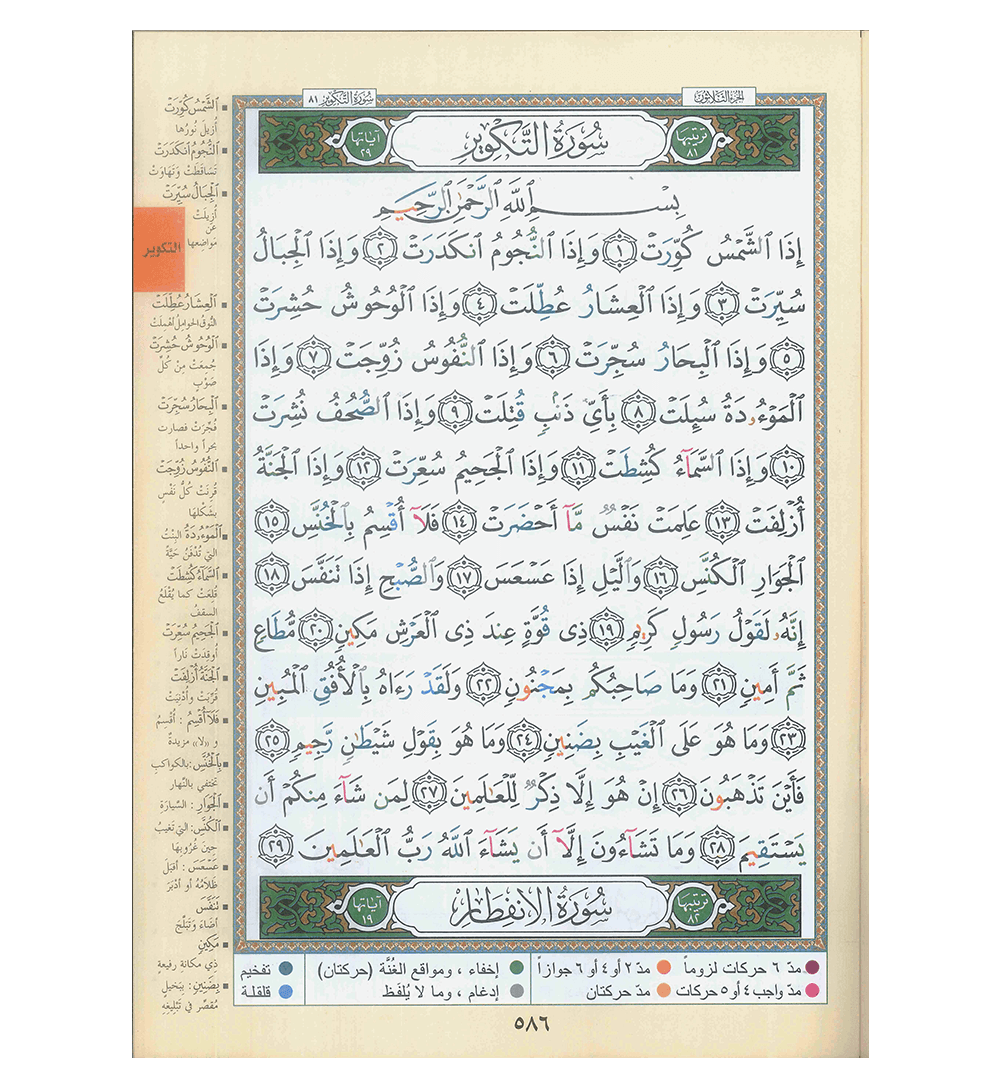 الجزء الثلاثون
سورة التكوير ٨١
ترتيبها ٨١
سُورَةُ التَّكْوِيرِ
آياتها ٢٩
بِسْمِ ٱللَّهِ ٱلرَّحْمَٰنِ ٱلرَّحِيمِ
إِذَا ٱلشَّمْسُ كُوِّرَتْ ١ وَإِذَا ٱلنُّجُومُ ٱنكَدَرَتْ ٢ وَإِذَا ٱلْجِبَالُ
سُيِّرَتْ ٣ وَإِذَا ٱلْعِشَارُ عُطِّلَتْ ٤ وَإِذَا ٱلْوُحُوشُ حُشِرَتْ
٥ وَإِذَا ٱلْبِحَارُ سُجِّرَتْ ٦ وَإِذَا ٱلنُّفُوسُ زُوِّجَتْ ٧ وَإِذَا
ٱلْمَوْءُۥدَةُ سُئِلَتْ ٨ بِأَيِّ ذَنۢبٍ قُتِلَتْ ٩ وَإِذَا ٱلصُّحُفُ نُشِرَتْ
١٠ وَإِذَا ٱلسَّمَآءُ كُشِطَتْ ١١ وَإِذَا ٱلْجَحِيمُ سُعِّرَتْ ١٢ وَإِذَا ٱلْجَنَّةُ
أُزْلِفَتْ ١٣ عَلِمَتْ نَفْسٌ مَّآ أَحْضَرَتْ ١٤ فَلَآ أُقْسِمُ بِٱلْخُنَّسِ ١٥
ٱلْجَوَارِ ٱلْكُنَّسِ ١٦ وَٱلَّيْلِ إِذَا عَسْعَسَ ١٧ وَٱلصُّبْحِ إِذَا تَنَفَّسَ ١٨
إِنَّهُۥ لَقَوْلُ رَسُولٍ كَرِيمٍ ١٩ ذِى قُوَّةٍ عِندَ ذِى ٱلْعَرْشِ مَكِينٍ ٢٠ مُّطَاعٍ
ثَمَّ أَمِينٍ ٢١ وَمَا صَاحِبُكُم بِمَجْنُونٍ ٢٢ وَلَقَدْ رَءَاهُ بِٱلْأُفُقِ ٱلْمُبِينِ
٢٣ وَمَا هُوَ عَلَى ٱلْغَيْبِ بِضَنِينٍ ٢٤ وَمَا هُوَ بِقَوْلِ شَيْطَٰنٍ رَّجِيمٍ ٢٥
فَأَيْنَ تَذْهَبُونَ ٢٦ إِنْ هُوَ إِلَّا ذِكْرٌ لِّلْعَٰلَمِينَ ٢٧ لِمَن شَآءَ مِنكُمْ أَن
يَسْتَقِيمَ ٢٨ وَمَا تَشَآءُونَ إِلَّآ أَن يَشَآءَ ٱللَّهُ رَبُّ ٱلْعَٰلَمِينَ ٢٩
ترتيبها ٨٢
سُورَةُ الانفِطَارِ
آياتها ١٩
ٱلشَّمْسُ كُوِّرَتْ
أُزيلَ نُورُها
ٱلنُّجُومُ ٱنكَدَرَتْ
تَساقَطَتْ وَتَهاوَتْ
ٱلْجِبَالُ سُيِّرَتْ
أُزيلَتْ
عن
مَواضِعها
التكوير
ٱلْعِشَارُ عُطِّلَتْ
النُّوقُ الحَوامِلُ أُهْمِلَتْ
ٱلْوُحُوشُ حُشِرَتْ
جُمِعَتْ مِنْ كُلِّ
صَوْبٍ
ٱلْبِحَارُ سُجِّرَتْ
فُجِّرَتْ فصارت
بحراً واحداً
ٱلنُّفُوسُ زُوِّجَتْ
قُرِنَتْ كُلُّ نَفْسٍ
بِشَكْلِهَا
ٱلْمَوْءُۥدَةُ البِنْتُ
التي تُدْفَنُ حَيَّةً
ٱلسَّمَآءُ كُشِطَتْ
قُلِعَتْ كما يُقْلَعُ
السقفُ
ٱلْجَحِيمُ سُعِّرَتْ
أُوقِدَتْ ناراً
ٱلْجَنَّةُ أُزْلِفَتْ
قُرِّبَتْ وأُدْنِيَتْ
فَلَآ أُقْسِمُ : أُقْسِمُ
و «لا» مزيدةٌ
بِٱلْخُنَّسِ : بالكواكبِ
تختفي بالنَّهار
ٱلْجَوَارِ : السَّيارَة
ٱلْكُنَّسِ : التي تَغيبُ
حِينَ غُرُوبِهَا
عَسْعَسَ : أقبَلَ
ظَلَامُهُ أو أَدْبَرَ
تَنَفَّسَ
أَضَاءَ وَتَبَلَّجَ
مَكِينٍ
ذِي مكانة رفيعةٍ
بِضَنِينٍ : بِبَخيلٍ
مُقصِّر في تَبْليغِه
مدّ ٦ حركات لزوماً
مدّ ٢ أو ٤ أو ٦ جوازاً
إخفاء ، ومواقع الغُنَّة (حركتان)
تفخيم
مدّ واجب ٤ أو ٥ حركات
مدّ حركتان
إدغام ، وما لا يُلفَظ
قلقلة
٥٨٦